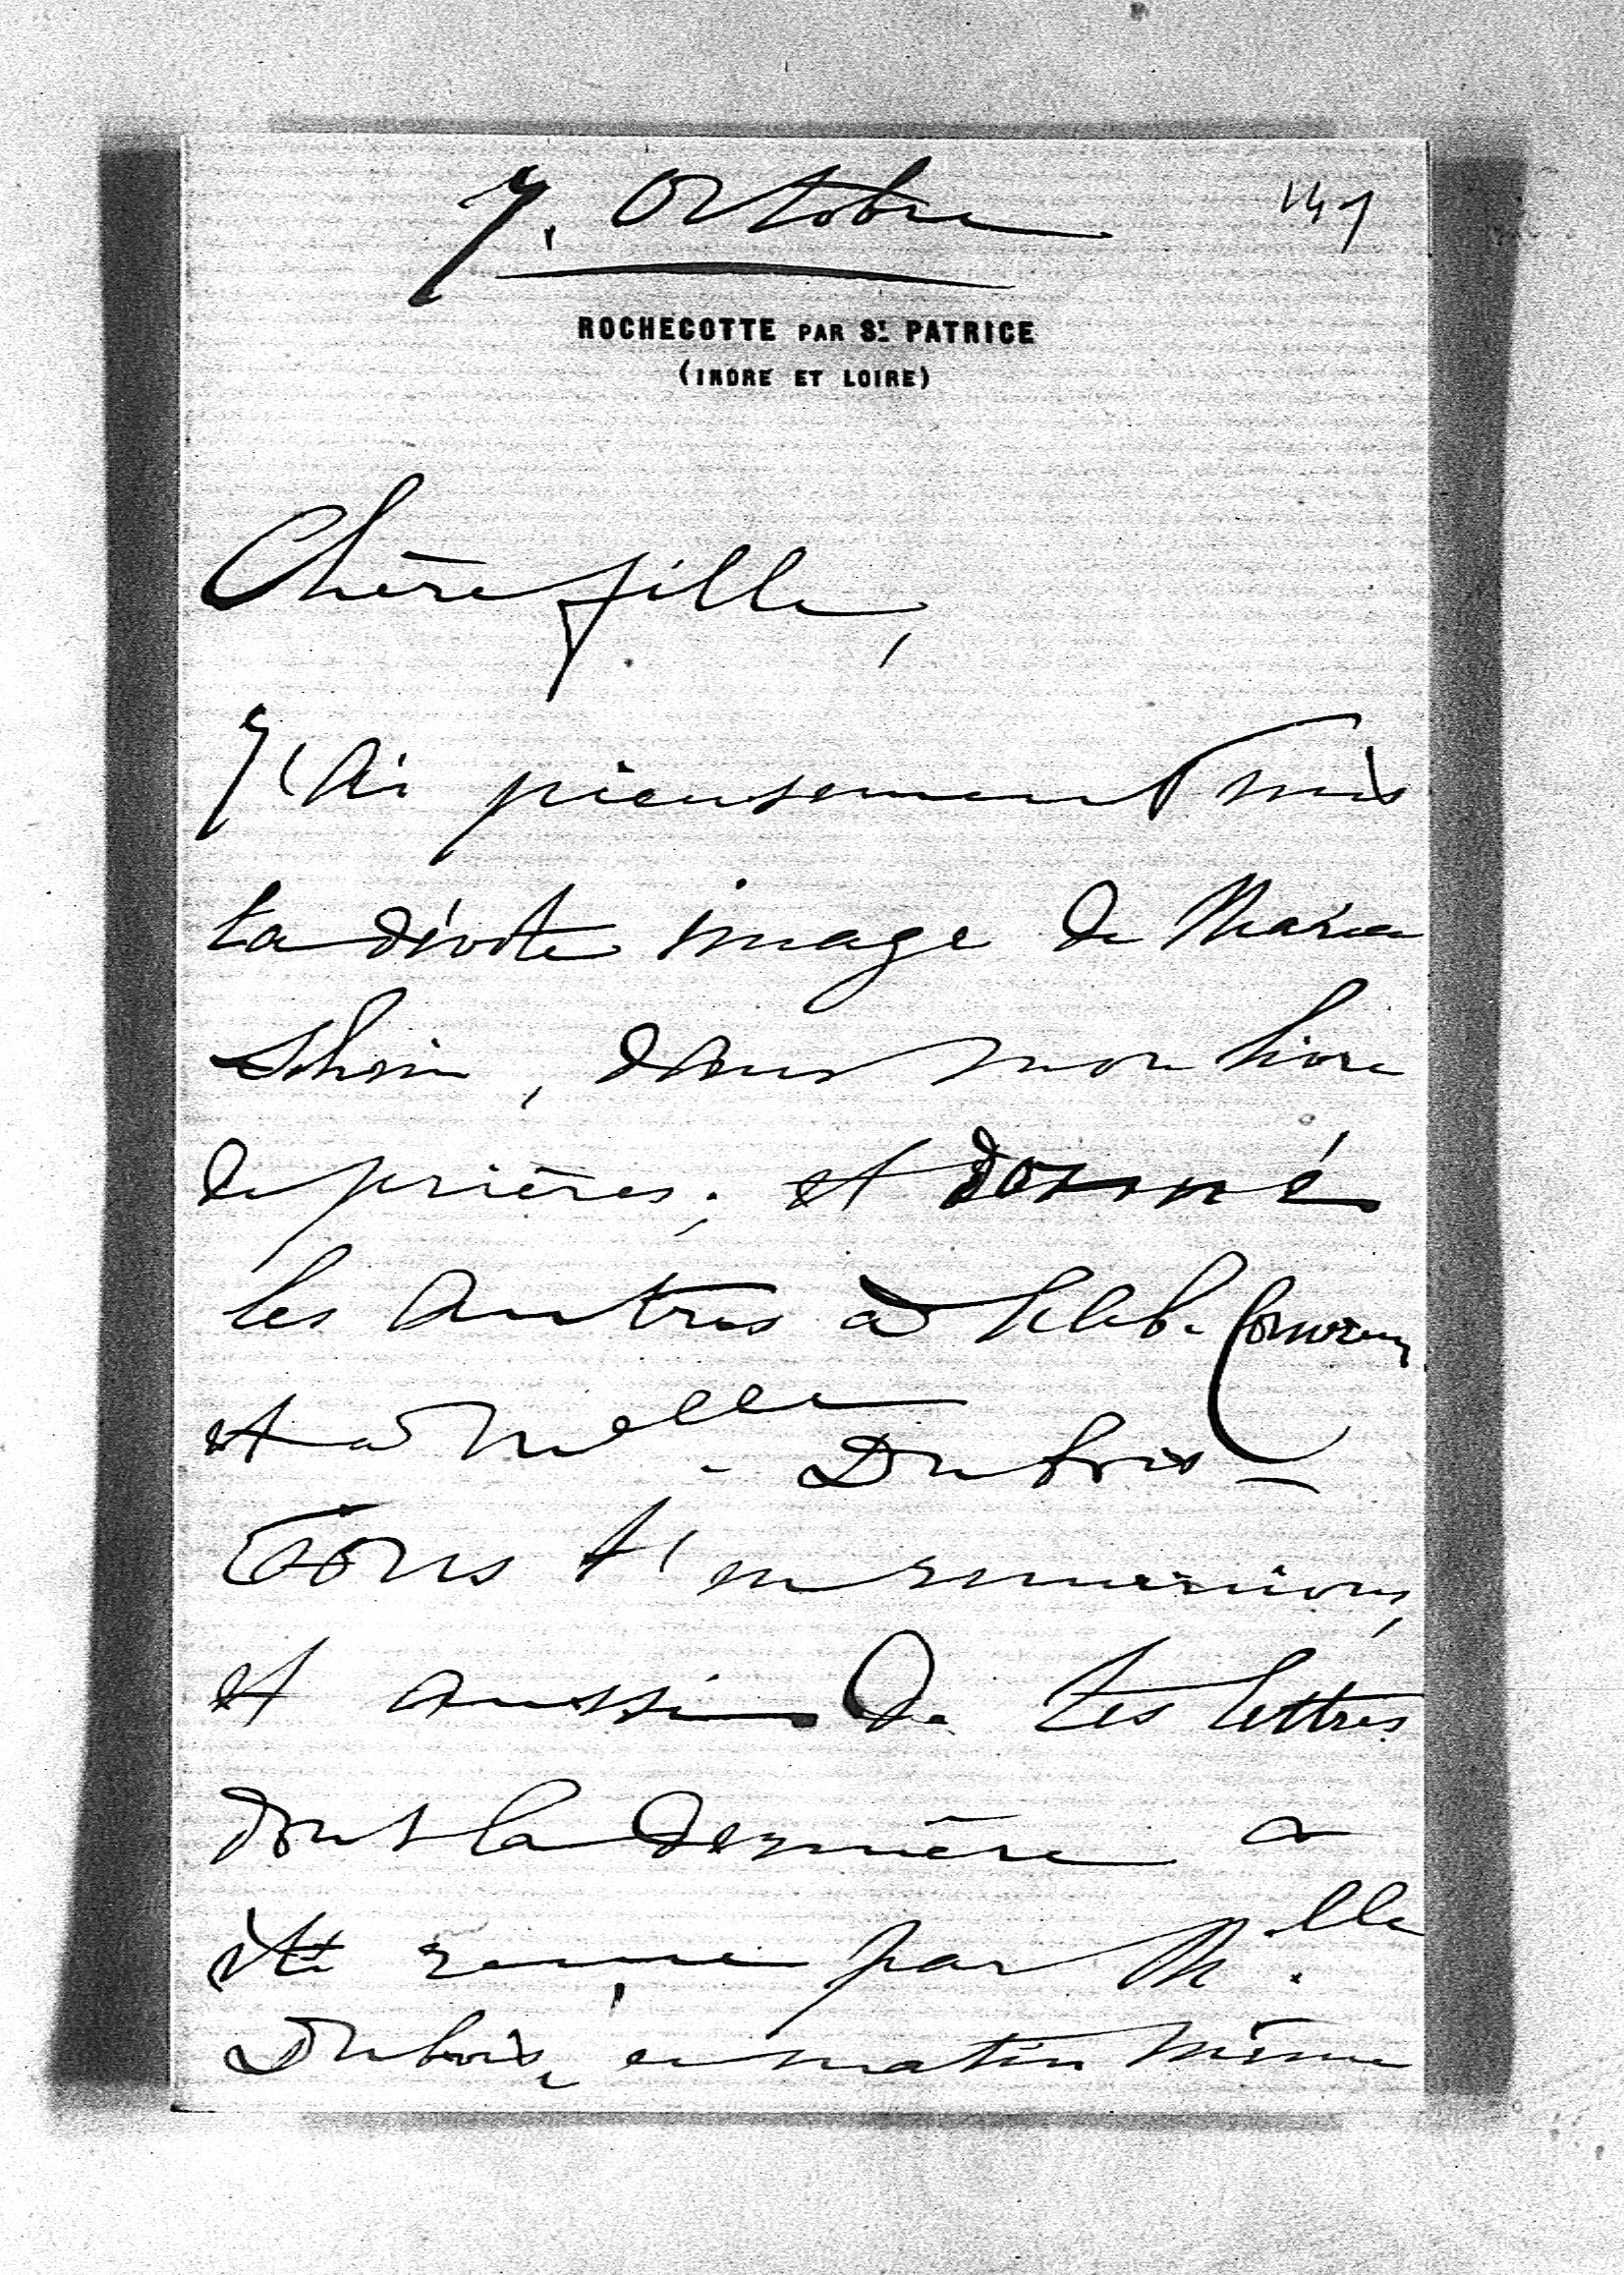 7. Octobre
ROCHECOTTE PAR St PATRICE
(INDRE ET LOIRE)
Chère fille,
J'ai pieusement mis
ta dévote image de Maria
Schein, dans mon livre
de prières; et donné
les autres à l'abbé
et à Melle. Dubois –
Tous t'en remercions,
et aussi de tes lettres
dont la dernière a
été reçue par Mlle.
Dubois, ce matin même